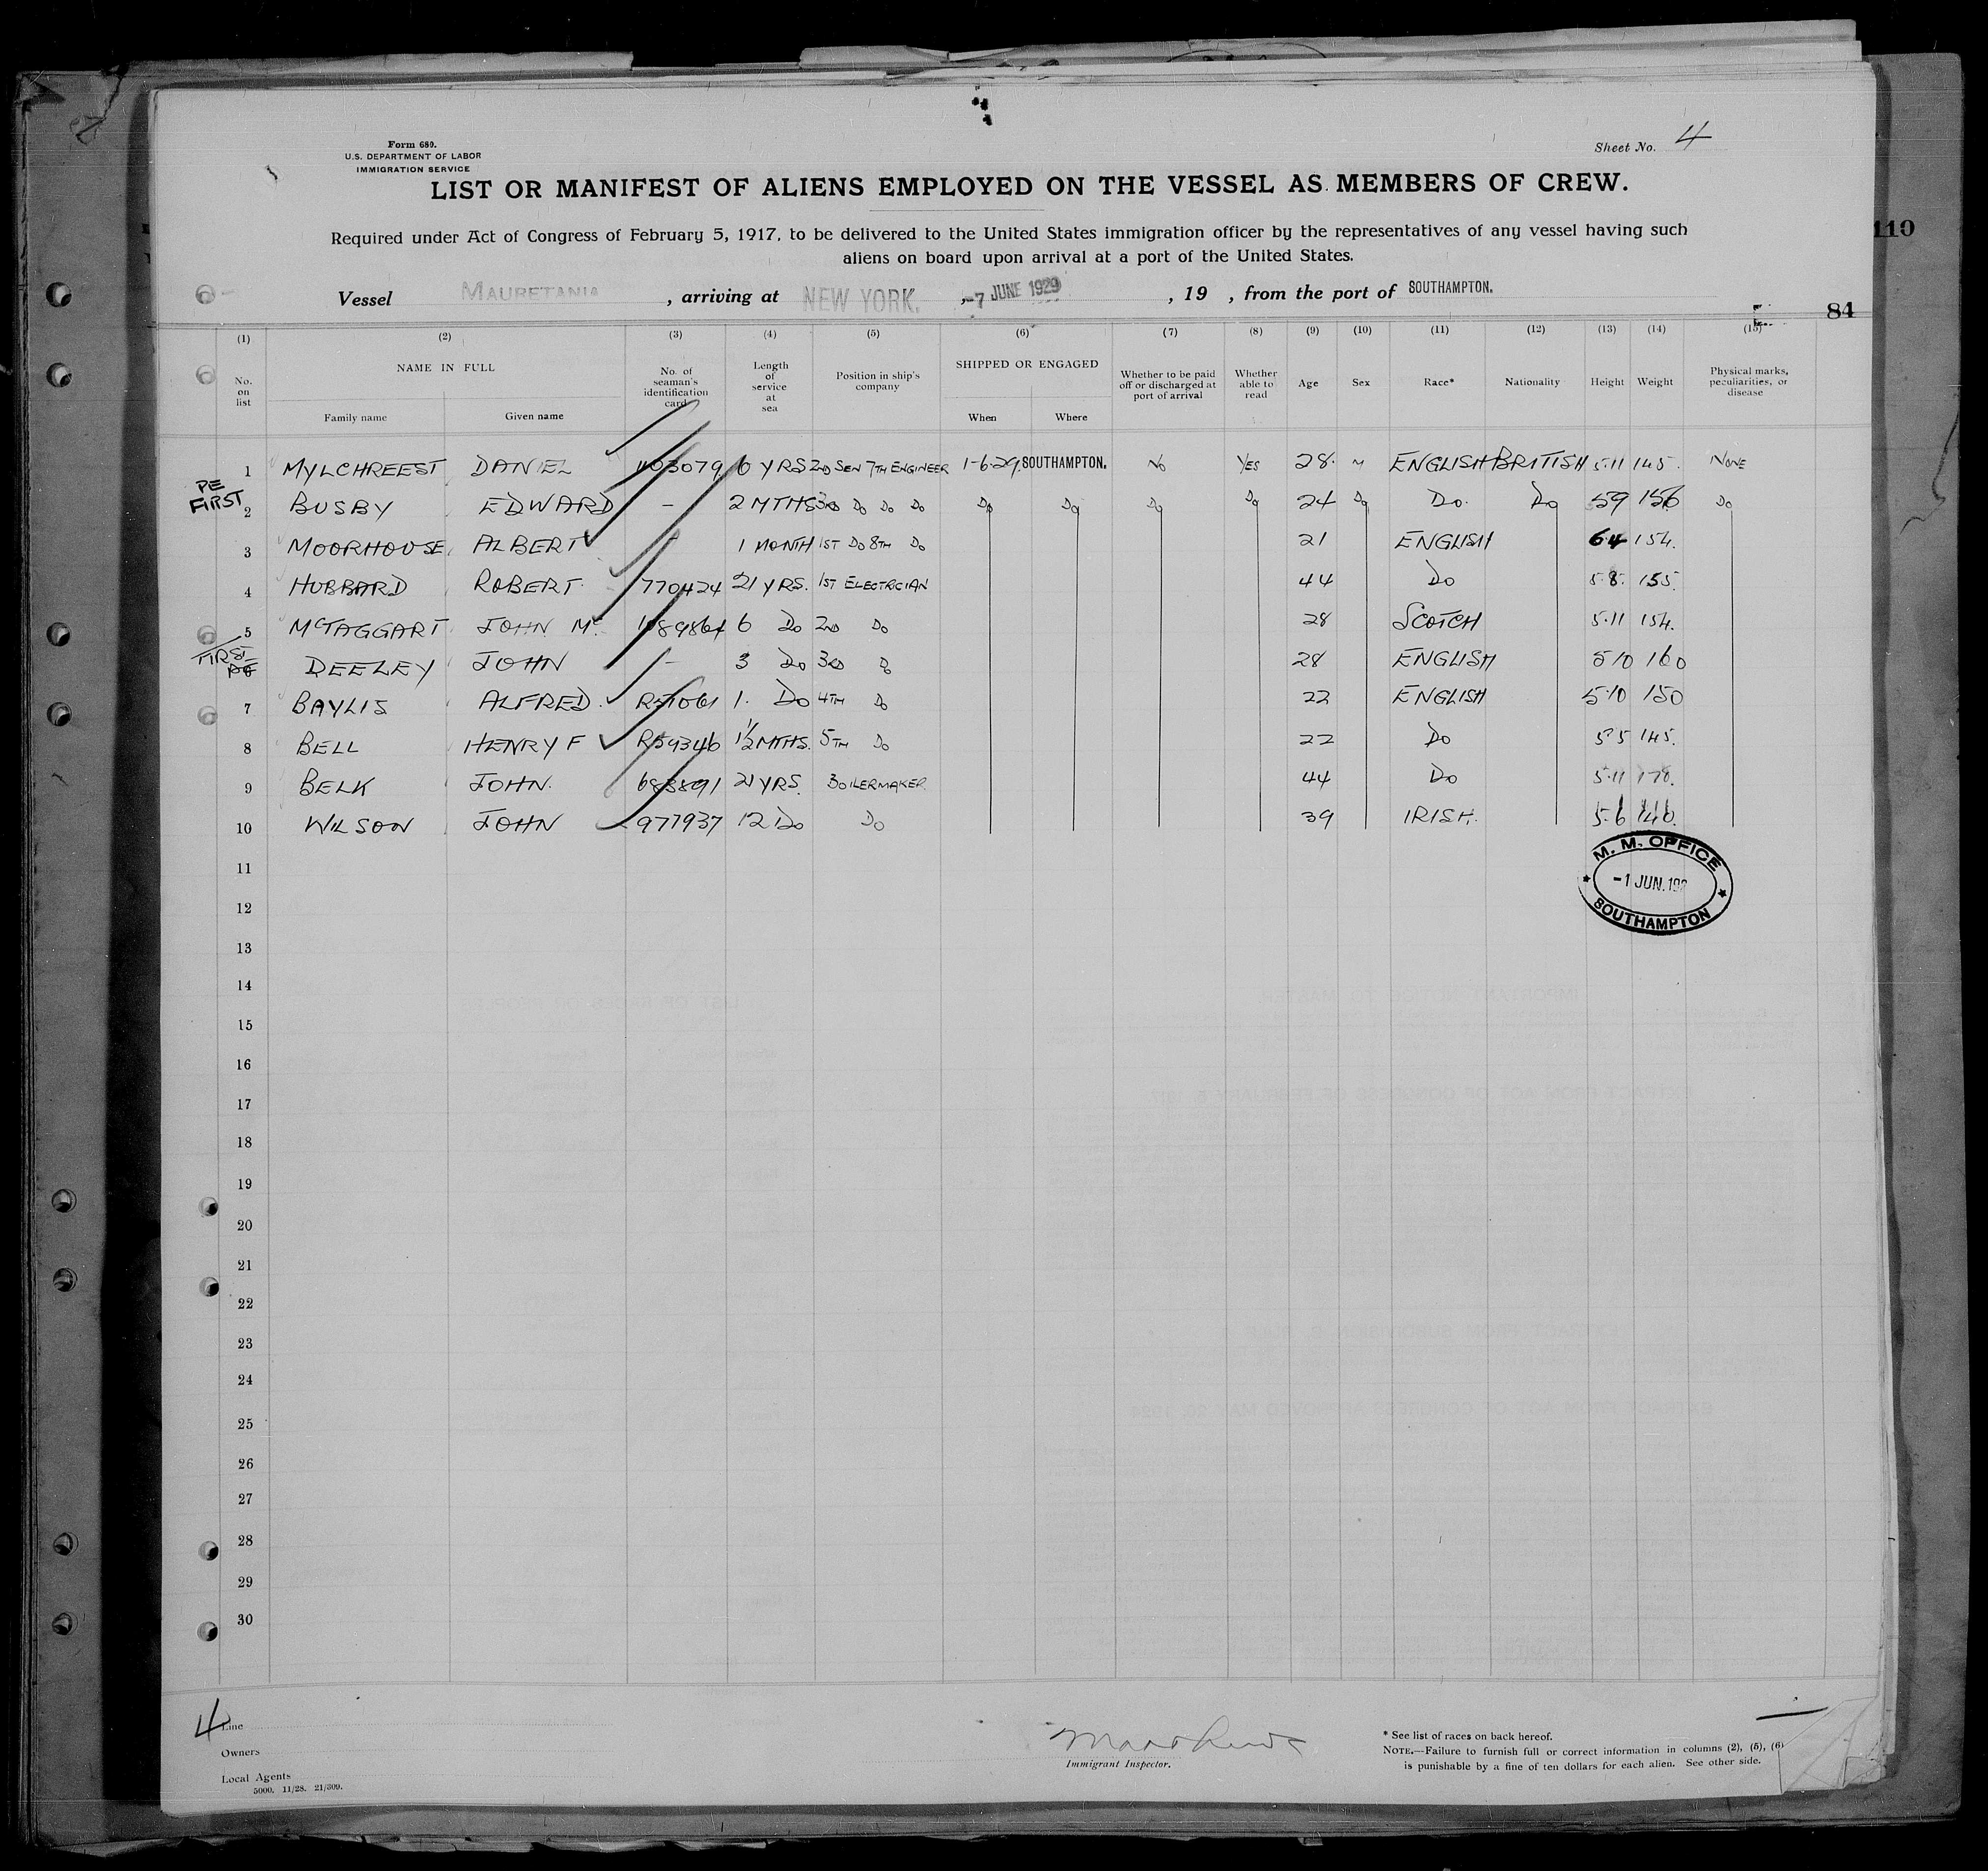 Form 680.
U.S. DEPARTMENT OF LABOR
IMMIGRATION SERVICE
Sheet No. 4
LIST OR MANIFEST OF ALIENS EMPLOYED ON THE VESSEL AS MEMBERS OF CREW.
Required under Act of Congress of February 5, 1917, to be delivered to the United States immigration officer by the representatives of any vessel having such
aliens on board upon arrival at a port of the United States.
110
Vessel MAURETANIA , arriving at NEW YORK. , -7 JUNE 1929 , 19 , from the port of SOUTHAMPTON.
84
(1) (2) (3) (4) (5) (6) (7) (8) (9) (10) (11) (12) (13) (14) (15)
No. on list NAME IN FULL Family name Given name No. of seaman's identification card Length of service at sea Position in ship's company SHIPPED OR ENGAGED When Where Whether to be paid off or discharged at port of arrival Whether able to read Age Sex Race* Nationality Height Weight Physical marks, peculiarities, or disease
1 MYLCHREEST DANIEL 1103079 6 YRS 2ND SEN 7TH ENGINEER 1-6-29 SOUTHAMPTON. NO YES 28 M ENGLISH BRITISH 5.11 145. NONE
PE FIRST
2 BUSBY EDWARD — 2 MTHS 3RD DO DO DO DO DO DO DO 24 DO DO. DO 59 156 DO
3 MOORHOUSE ALBERT — 1 MONTH 1ST DO 8TH DO 21 ENGLISH 6.4 154.
4 HUBBARD ROBERT 770424 21 YRS. 1ST ELECTRICIAN 44 DO 5.8. 155.
5 McTAGGART JOHN Mc 6 DO 2ND DO 28 SCOTCH 5.11 154.
FIRST PE
DEELEY JOHN — 3 DO 3RD DO 28 ENGLISH 5 10 160
7 BAYLIS ALFRED. 1. DO 4TH DO 22 ENGLISH 5.10 150
8 BELL HENRY F R59346 1½ MTHS. 5TH DO 22 DO 5.5 145.
9 BELK JOHN. 683891 21 YRS. BOILERMAKER. 44 DO 5.11 170.
10 WILSON JOHN 977937 12 DO DO 39 IRISH. 5.6 146.
11
M. M. OFFICE
-1 JUN. 192
SOUTHAMPTON
12
13
14
15
16
17
18
19
20
21
22
23
24
25
26
27
28
29
30
4
Line
Owners
Local Agents
5000. 11/28. 21/309.
Immigrant Inspector.
* See list of races on back hereof.
NOTE.—Failure to furnish full or correct information in columns (2), (5), (6)
is punishable by a fine of ten dollars for each alien. See other side.